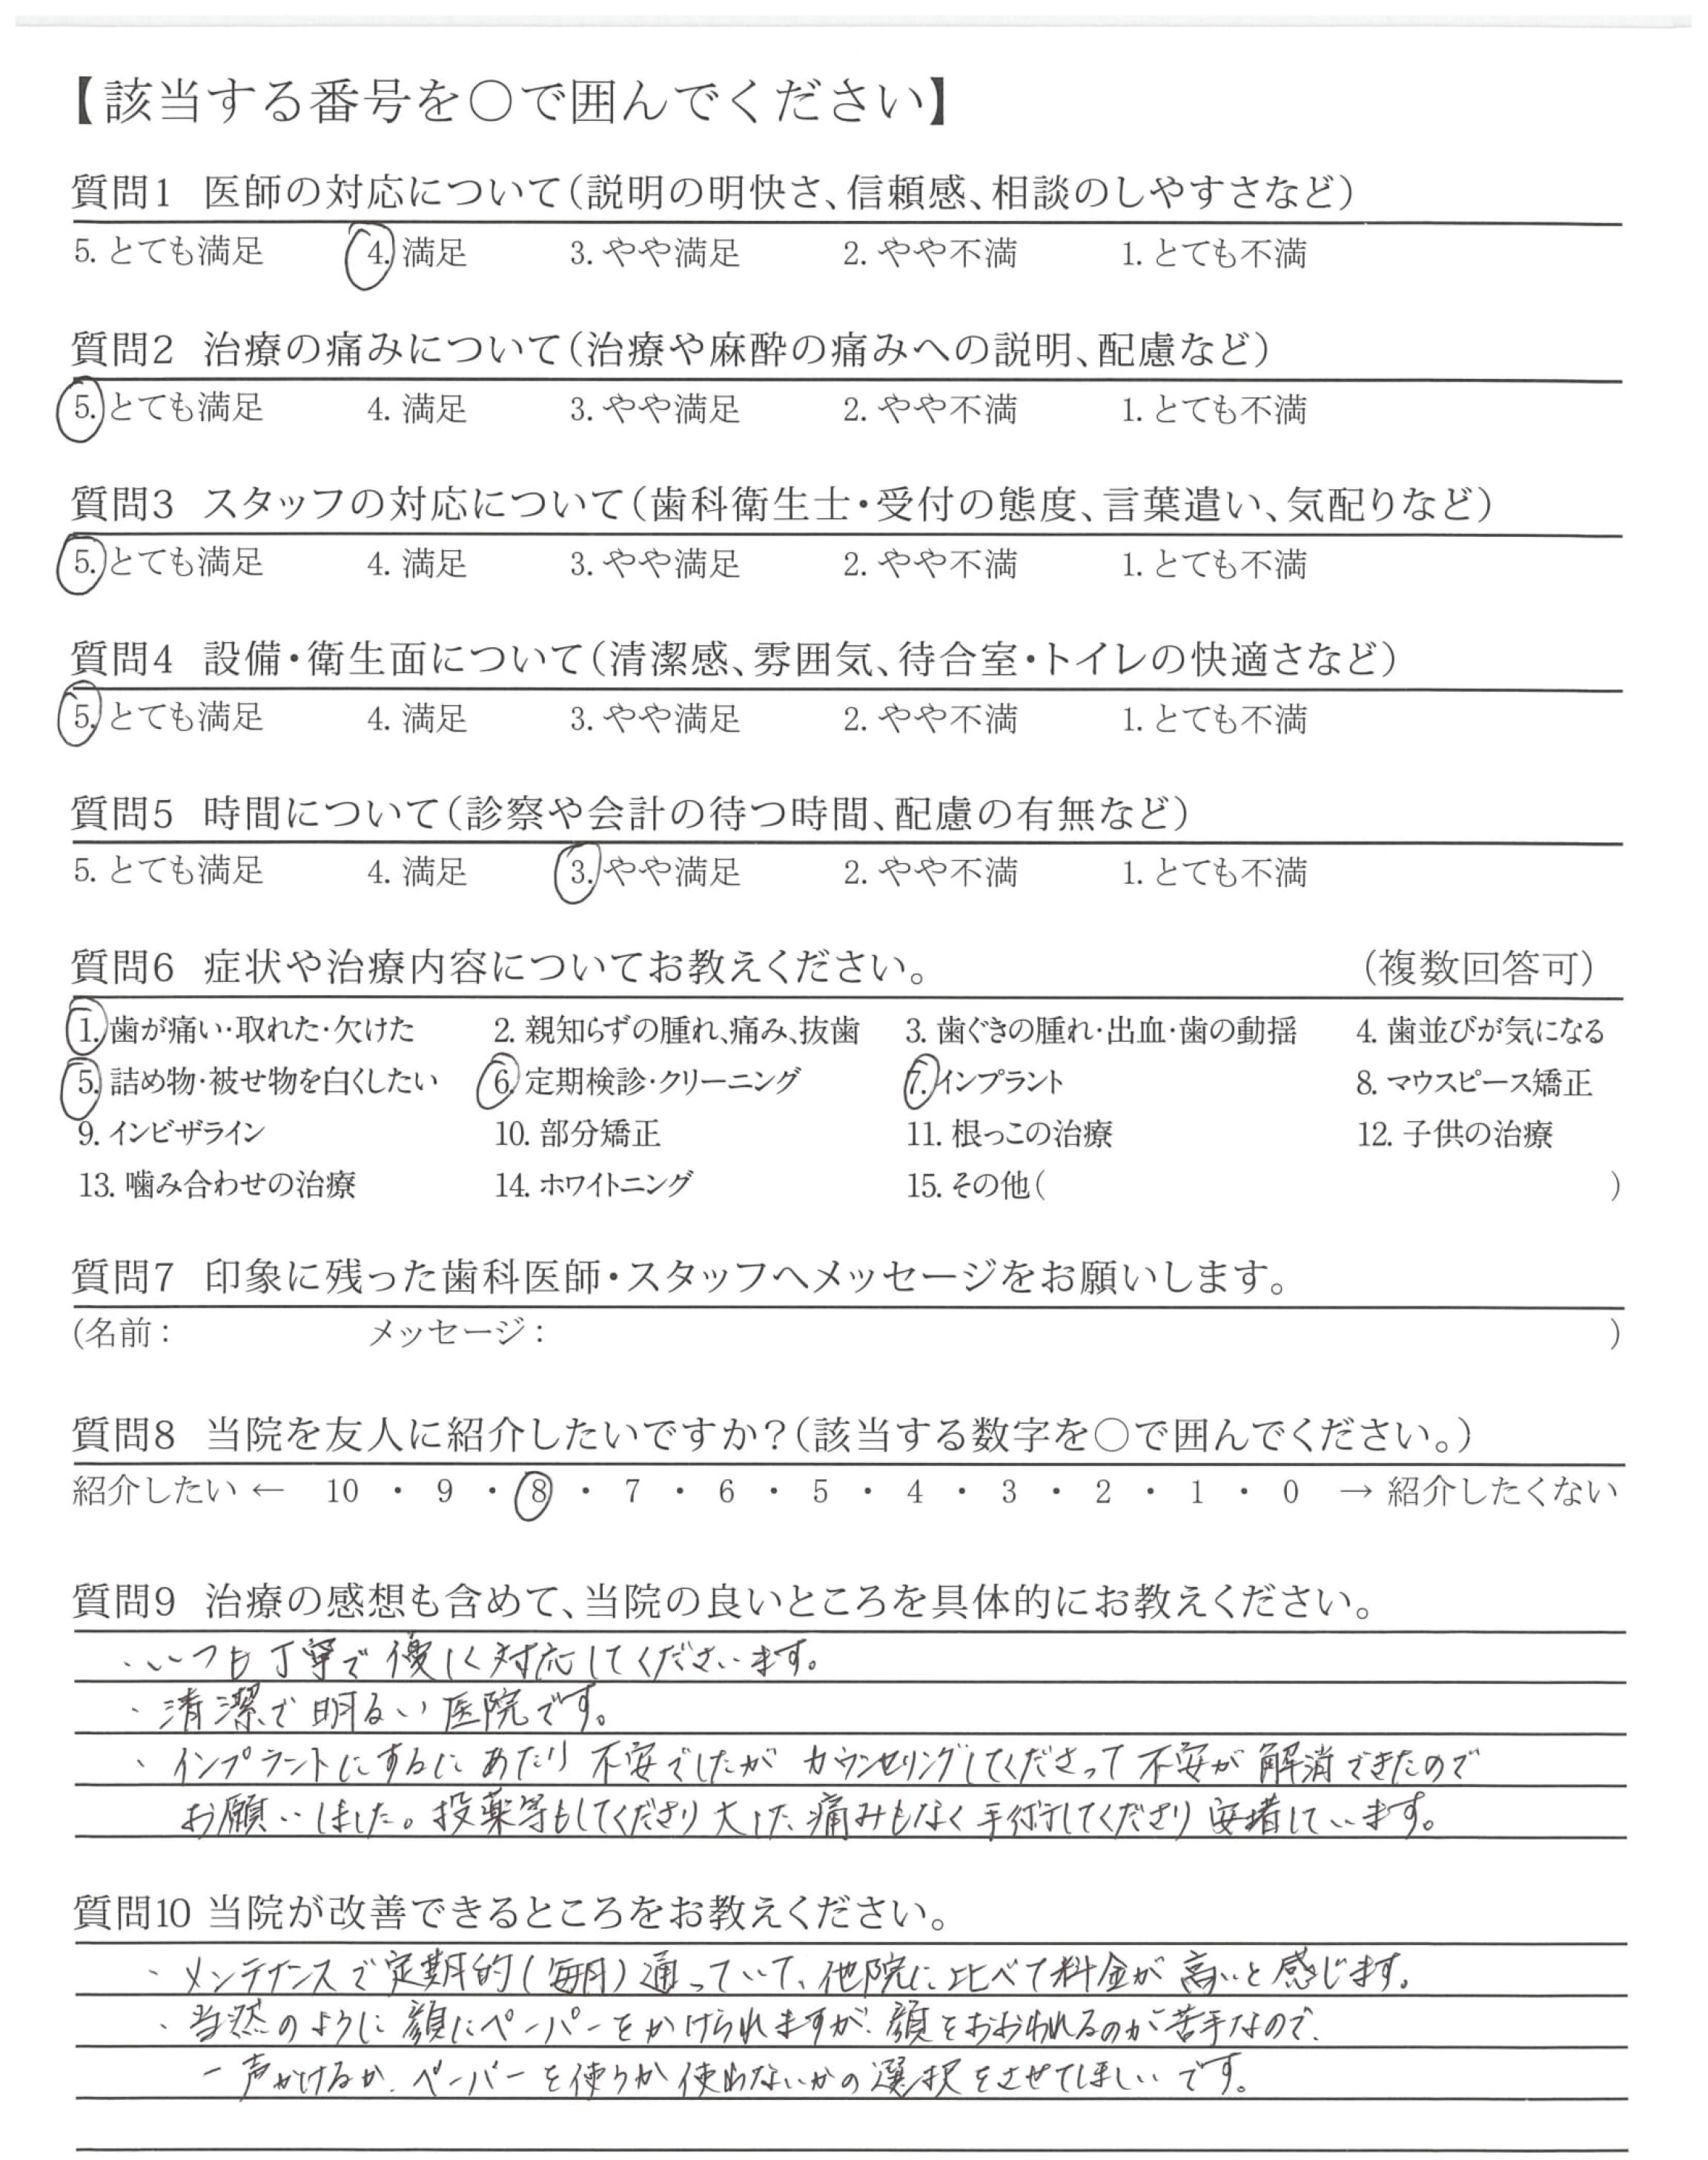 【該当する番号を○で囲んでください】
質問1 医師の対応について(説明の明快さ、信頼感、相談のしやすさなど)
5. とても満足 4. 満足 3. やや満足 2. やや不満 1. とても不満
質問2 治療の痛みについて(治療や麻酔の痛みへの説明、配慮など)
5. とても満足 4. 満足 3. やや満足 2. やや不満 1. とても不満
質問3 スタッフの対応について(歯科衛生士・受付の態度、言葉遣い、気配りなど)
5. とても満足 4. 満足 3. やや満足 2. やや不満 1. とても不満
質問4 設備・衛生面について(清潔感、雰囲気、待合室・トイレの快適さなど)
5. とても満足 4. 満足 3. やや満足 2. やや不満 1. とても不満
質問5 時間について(診察や会計の待つ時間、配慮の有無など)
5. とても満足 4. 満足 3. やや満足 2. やや不満 1. とても不満
質問6 症状や治療内容についてお教えください。 (複数回答可)
1. 歯が痛い・取れた・欠けた 2. 親知らずの腫れ、痛み、抜歯 3. 歯ぐきの腫れ・出血・歯の動揺 4. 歯並びが気になる
5. 詰め物・被せ物を白くしたい 6. 定期検診・クリーニング 7. インプラント 8. マウスピース矯正
9. インビザライン 10. 部分矯正 11. 根っこの治療 12. 子供の治療
13. 噛み合わせの治療 14. ホワイトニング 15. その他( )
質問7 印象に残った歯科医師・スタッフへメッセージをお願いします。
(名前: メッセージ: )
質問8 当院を友人に紹介したいですか?(該当する数字を○で囲んでください。)
紹介したい ← 10 ・ 9 ・ 8 ・ 7 ・ 6 ・ 5 ・ 4 ・ 3 ・ 2 ・ 1 ・ 0 → 紹介したくない
質問9 治療の感想も含めて、当院の良いところを具体的にお教えください。
・いつも丁寧で優しく対応してくださいます。
・清潔で明るい医院です。
・インプラントにするにあたり不安でしたがカウンセリングしてくださって不安が解消できたので
お願いしました。投薬等もしてくださり大した痛みもなく手術してくださり安堵しています。
質問10 当院が改善できるところをお教えください。
・メンテナンスで定期的(毎月)通っていて、他院に比べて料金が高いと感じます。
・当然のように顔にペーパーをかけられますが、顔をおおわれるのが苦手なので、
一声かけるか、ペーパーを使うか使わないかの選択をさせてほしいです。